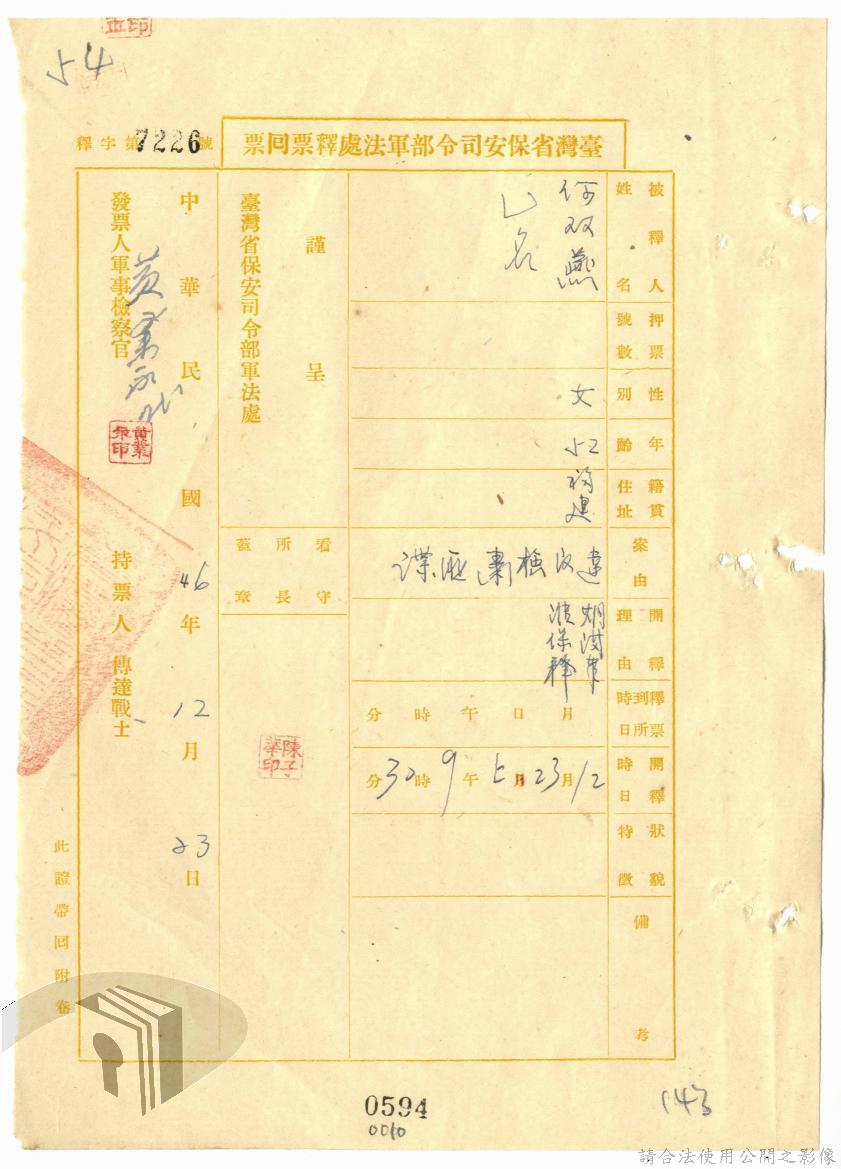 54
臺灣省保安司令部軍法處釋票回票
釋字第7226號
被釋人姓名
何双燕
乙名
押票號數
性別
女
年齡
52
籍貫住址
福建
案由
違反檢肅匪諜
開釋理由
准保釋
釋票到所時日
月 日 午 時 分
開釋時日
12月23日上午9時32分
狀貌特徵
備考
謹呈
臺灣省保安司令部軍法處
看守所所長蓋章
陳子華印
中華民國46年12月23日
發票人軍事檢察官
持票人 傳達戰士
此證帶回附卷
0594
0010
143
請合法使用公開之影像